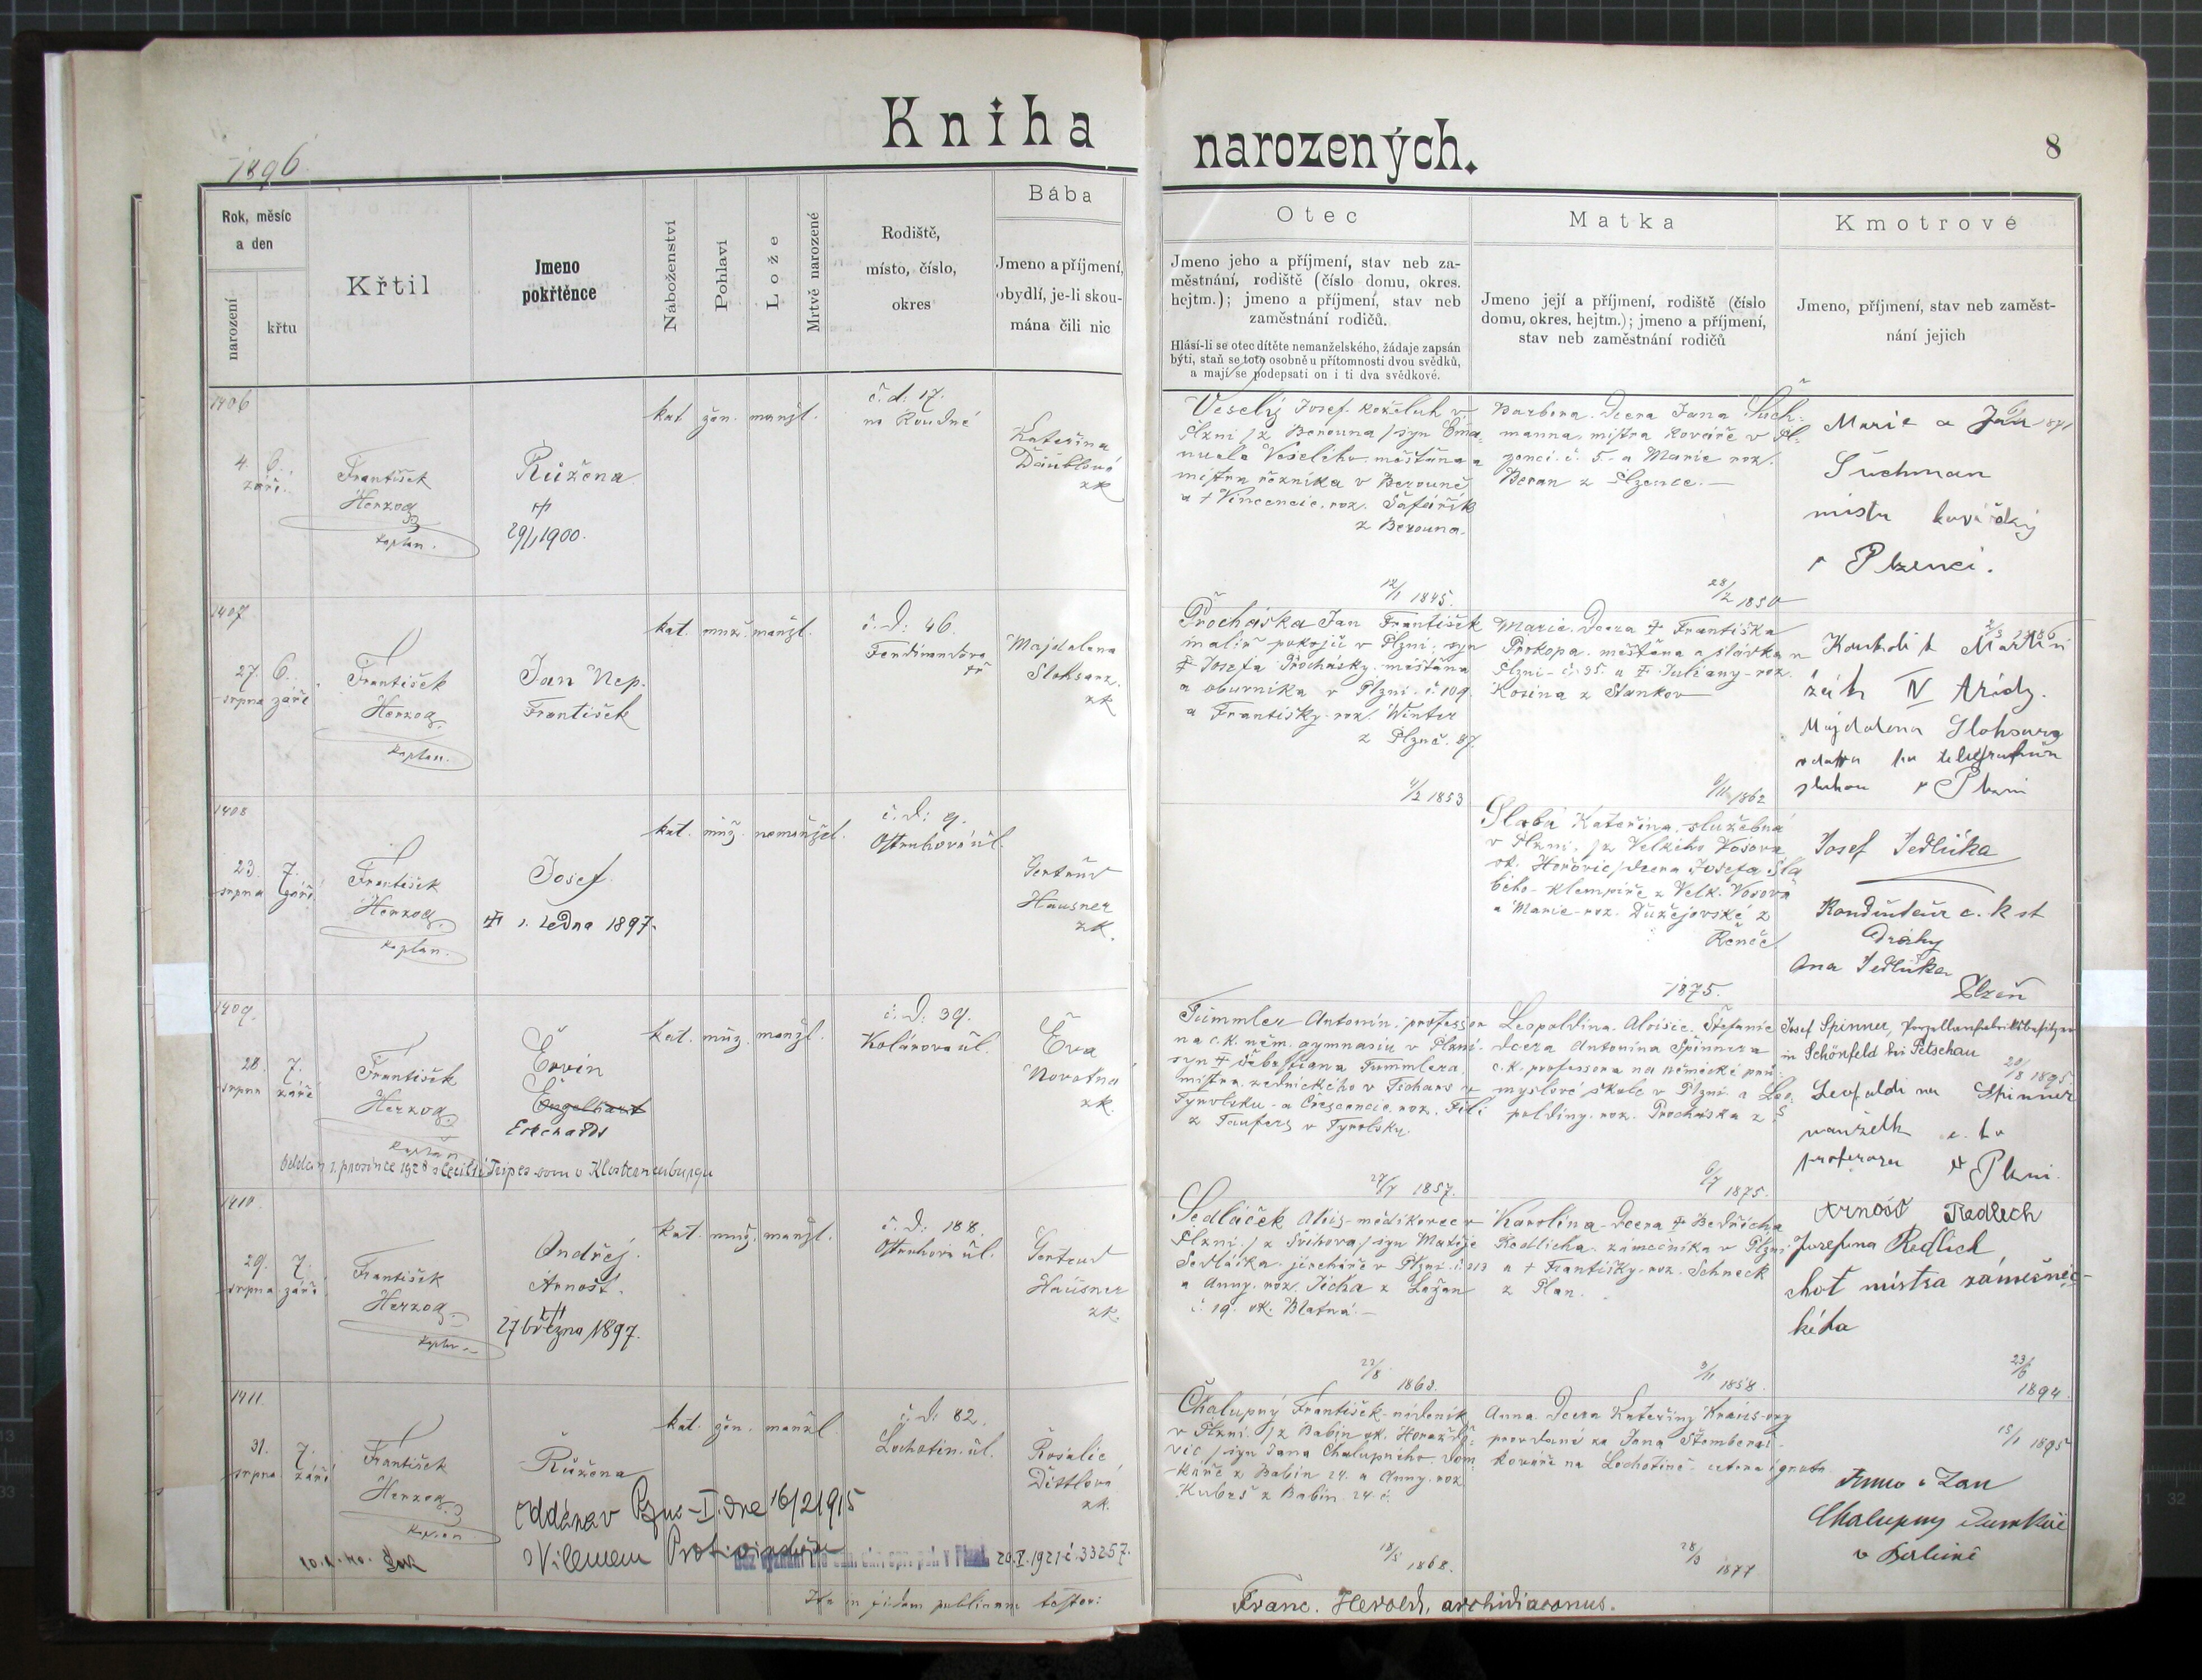 Kniha
narozených.
8
1896
Rok, měsíc
a den
narození
křtu
Křtil
Jmeno
pokřtěnce
Náboženství
Pohlaví
Lože
Mrtvě narozené
Rodiště,
místo, číslo,
okres
Bába
Jmeno a příjmení,
obydlí, je-li skou-
mána čili nic
Otec
Jmeno jeho a příjmení, stav neb za-
městnání, rodiště (číslo domu, okres.
hejtm.); jmeno a příjmení, stav neb
zaměstnání rodičů.
Hlásí-li se otec dítěte nemanželského, žádaje zapsán
býti, staň se toto osobně u přítomnosti dvou svědků,
a mají se podepsati on i ti dva svědkové.
Matka
Jmeno její a příjmení, rodiště (číslo
domu, okres. hejtm.); jmeno a příjmení,
stav neb zaměstnání rodičů
Kmotrové
Jmeno, příjmení, stav neb zaměst-
nání jejich
1406
4. 6.
září.
František
Herzog
kaplan.
Růžena
29/1 1900.
kat. žen. manžl.
č. d. 17.
na Roudné
Kateřina
Däublová
zk
Veselý Josef koželuh v
Plzni /z Berouna/ syn Ema-
nuela Veselého měšťana a
mistra řezníka v Berouně
a † Vincencie, roz. Šafařík
z Berouna.
12/1 1845.
Barbora. Dcera Jana Such-
manna, mistra kováře v Pl-
zenci č. 5. a Marie roz.
Beran z Plzence.
28/2 1850
Marie a Jan
Suchman
mistr kovářský
v Plzenci.
1407
27. 6.
srpna září
František
Herzog.
kaplan.
Jan Nep.
František
kat. muž. manžl.
č. d: 46.
Ferdinandova
tř
Majdalena
Slohsarz.
zk
Procháska Jan František
malíř pokojů v Plzni, syn
† Josefa Prochásky měšťana
a oburníka v Plzni č. 109.
a Františky roz. Winter
z Plzně. 87.
4/2 1853
Marie. Dcera † Františka
Prokopa. měšťana a sládka v
Plzni č. 95. a † Juliany roz.
Kosina z Stankov
9/11 1862
Martin
žák IV třídy.
Majdalena Slohsarz
vdova po telegrafním
sluhovi v Plzni
1408
23. 7.
srpna září
František
Herzog.
kaplan.
Josef.
† 1. ledna 1897.
kat. muž. nemanžel.
č. d: 9.
Ostruhová úl.
Gertrud
Hausner
zk.
Slabá Kateřina, služebná
v Plzni, /z Velkého Vosova
ok. Hořovic/ dcera Josefa Sla-
bého klempíře z Velk. Vosova
a Marie roz. Dužejovské z
1875.
Josef Jedlička
Kondukteur c. k st
Dráhy
Ana Jedlička
Plzeň
1409.
28. 7.
srpna září
František
Herzog.
kaplan
Ervin
Engelhart
Erhardt
Oddán 1. prosince 1928 s Cecilií Tripessovou v Klosterneuburgu
kat. muž. manžl.
č. d: 39.
Kolárova úl.
Eva
Novotná
zk.
Tummler Antonín, professor
na c. k. něm. gymnasiu v Plzni.
syn † Šebestiana Tummlera,
mistra zednického v Tschars v
Tyrolsku a Crescencie roz. Fili
z Taufers v Tyrolsku.
27/7 1857.
Leopoldina. Aloisie. Štefanie
dcera Antonína Spinnera
c. k. professora na německé prů-
myslové škole v Plzni a Leo-
poldiny roz. Procháska z
6/7 1875.
Josef Spinner, Porzellanfabriksbesitzer
in Schönfeld bei Petschau
20/8 1895.
Leopoldina Spinner
manželka c. k.
professora v Plzni.
1410
29. 7.
srpna září
František
Herzog.
kaplan
Andřej.
Arnošt.
27 března 1897.
kat. muž. manžl.
č. d: 188.
Ostruhová úl.
Gertrud
Hausner
zk.
Sedláček Alois mědikovec v
Plzni. /z Švihova/ syn Matěje
Sedláčka jircháře v Plzni č. 213
a Anny roz. Jícha z Lažan
č. 19. ok. Blatná.
22/8 1863.
Karolína. Dcera † Bedřicha
Redlicha zámečníka v Plzni
a † Františky roz. Schneck
z Plan.
3/11 1858.
Arnošt Redlich
Josefina Redlich
choť mistra zámečnic-
kého
23/6
1894.
1411
31. 7.
srpna září
František
Herzog.
kaplan
Růžena
kat. žen. manžl
č. d: 82.
Lochotín. úl.
Rosalie
Dittlová
zk.
Oddána v Plzni-I. dne 16/2 1915
s Vilémem Protivínským
20.X.1921 č. 33257.
Chalupný František nádeník
v Plzni. /z Babin ok. Horažďo-
vic/ syn Jana Chalupného. Dom-
káře z Babin 24. a Anny. roz.
Kubeš z Babin 24. č.
18/5 1868.
Anna. Dcera Kateřiny Kraus-ovy
provdané za Jana Štembera
kováře na Lochotíně
28/3 1877
15/1 1895
Anna a Jan
Chalupný domkář
v Babině
Franc. Herold, archidiaconus.